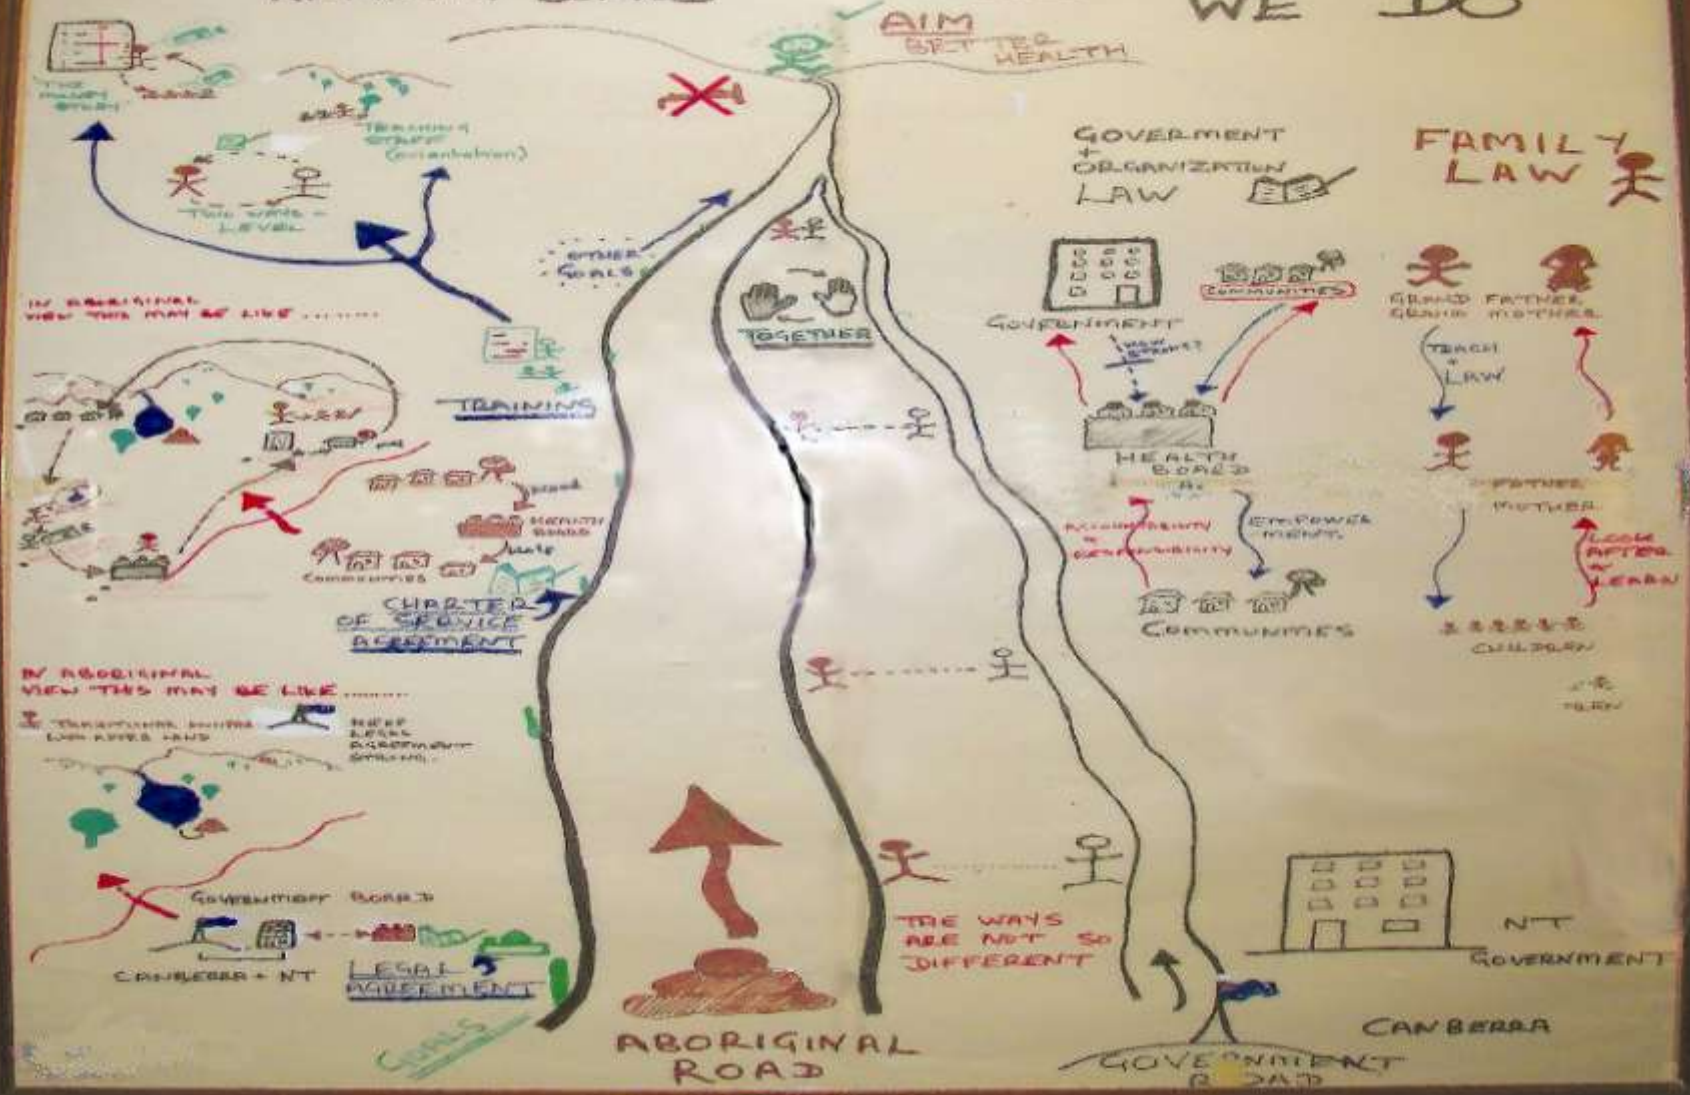 WE DO
AIM
BETTER
HEALTH
THE
MONEY
STORY
TRAINING
STAFF
(orientation)
TWO WAYS -
LEVEL
OTHER
GOALS
IN ABORIGINAL
VIEW THIS MAY BE LIKE ........
TRAINING
TOGETHER
HEALTH
BOARD
COMMUNITIES
CHARTER
OF SERVICE
AGREEMENT
IN ABORIGINAL
VIEW THIS MAY BE LIKE ........
TRADITIONAL OWNER
LOOK AFTER LAND
KEEP
LEGAL
AGREEMENT
STRONG.
GOVERNMENT BOARD
CANBERRA + NT
LEGAL
AGREEMENT
GOALS
ABORIGINAL
ROAD
THE WAYS
ARE NOT SO
DIFFERENT
GOVERMENT
+
ORGANIZATION
LAW
GOVERNMENT
COMMUNITIES
HOW
STRONG?
HEALTH
BOARD
ACCOUNTABILITY
RESPONSIBILITY
EMPOWER
MENT.
COMMUNITIES
FAMILY
LAW
GRAND FATHER
GRAND MOTHER
TEACH
LAW
FATHER
MOTHER
LOOK
AFTER
LEARN
CHILDREN
NT
GOVERNMENT
CANBERRA
GOVERNMENT
ROAD